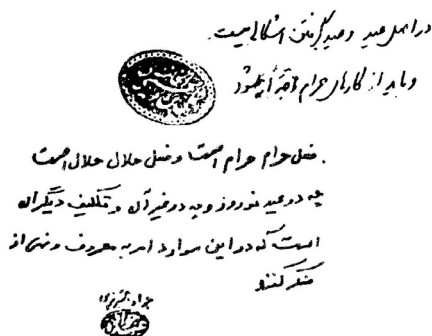 در اصل عید و عید گرفتن اشکالی نیست
و باید از کارهای حرام اجتناب شود
فعل حرام حرام است و فعل حلال حلال است
چه در عید نوروز و چه در غیر آن و تکلیف دیگران
است که در این موارد امر به معروف و نهی از
منکر کنند
جواد تبریزی